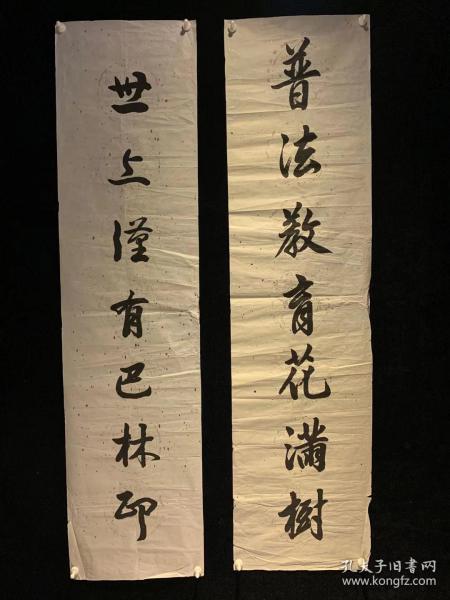 普法教育花满樹
世上僅有巴林印
孔夫子旧書网
www.kongfz.com